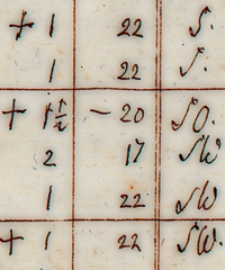 + 1 22 S.
1 22 S.
+ 1½ – 20 SO.
2 17 SW
1 22 SW
+ 1 22 SW.